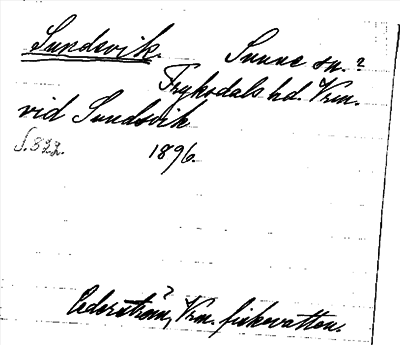 Sundsvik. Sunne sn.?
Fryksdals hd. Vrm.
vid Sundsvik
S. 322. 1896.
Cederström, Vrm. fiskevatten.